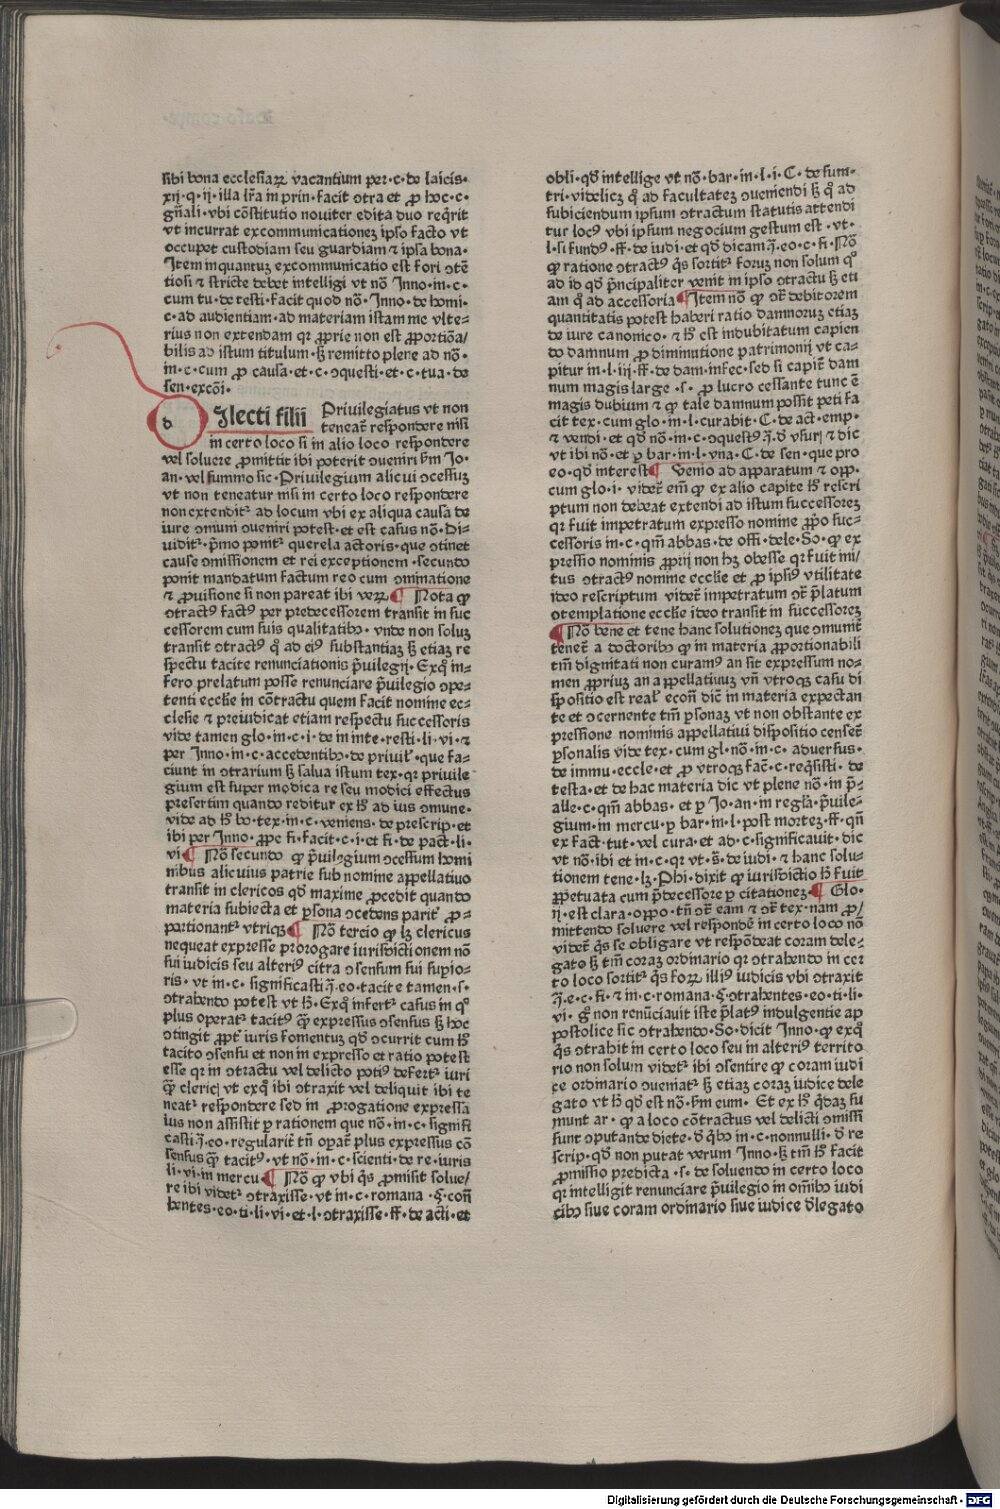 sibi bona ecclesiaꝝ vacantium per·c·de laicis·
xij·q·ij·illa lr̄a in prin·facit ꝯtra et ꝓ hoc·c·
gn̄ali·vbi cōstitutio nouiter edita duo reqͥrit
vt incurrat excommunicationeʒ ipso facto vt
occupet custodiam seu guardiam ⁊ ipsa bona·
Item inquantuʒ excommunicatio est fori ꝯtē
tiosi ⁊ stricte debet intelligi vt nō Inno·in·c·
cum tu·de testi·facit quod nō·Inno·de homi·
c·ad audientiam·ad materiam istam me vlte⸗
rius non extendam qꝛ ꝓprie non est ꝓportiōa/
bilis ad istum titulum·sꝫ remitto plene ad nō·
in·c·cum ꝓ causa·et·c·ꝯquesti·et·c·tua·de
sen·excōi·
d Ilecti filii Priuilegiatus vt non
teneat᷑ respondere nisi
in certo loco si in alio loco respondere
vel soluere ꝓmittit ibi poterit ꝯueniri hm̄ Jo·
an·vel summo sic·Priuilegium alicui ꝯcessuʒ
vt non teneatur nisi in certo loco respondere
non extendit᷑ ad locum vbi ex aliqua causa de
iure ꝯmuni ꝯueniri potest·et est casus nō·Di⸗
uidit᷑·pͥmo ponit᷑ querela actoris·que ꝯtinet
cause ꝯmissionem et rei exceptionem·secundo
ponit mandatum factum reo cum ꝯminatione
⁊ ꝓuisione si non pareat ibi veꝝ ¶ Nota ꝙ
ꝯtractꝰ factꝰ per predecessorem transit in suc
cessorem cum suis qualitatibꝫ·vnde non soluʒ
transit ꝯtractꝰ qͦ ad eiꝰ substantiaʒ sꝫ etiaʒ re
spectu tacite renunciationis pͥuilegij·Exqͦ in⸗
fero prelatum posse renunciare pͥuilegio ꝯpe⸗
tenti ecclīe in cōtractu quem facit nomine ec⸗
clesie ⁊ preiudicat etiam respectu successoris
vide tamen glo·in·c·i·de in inte·resti·li·vi·⁊
per Inno·in·c·accedentibꝫ·de priuil᷑·que fa⸗
ciunt in ꝯtrarium sꝫ salua istum tex·qꝛ priuile
gium est super modica re seu modici effectus
presertim quando reditur ex hͦ ad ius ꝯmune·
vide ad hͦ bo·tex·in·c·veniens·de prescrip·et
ibi per Inno·ꝓpe fi·facit·c·i·et fi·de pact·li·
vi ¶ Nō secundo ꝙ pͥuilegium ꝯcessum homi
nibus alicuius patrie sub nomine appellatiuo
transit in clericos qd̄ maxime ꝓcedit quando
materia subiecta et ꝑsona ꝯcedens parit᷑ ꝓ⸗
portionant᷑ vtriqꝫ ¶ Nō tercio ꝙ lꝫ clericus
nequeat expresse prorogare iurisdictionem nō
sui iudicis seu alteriꝰ citra ꝯsensum sui supio⸗
ris·vt in·c·significasti·ꝗ̄·eo·tacite tamen·s·
ꝯtrahendo potest vt hͦ·Exqͦ infert᷑ casus in qͦ
plus operat᷑ tacitꝰ qͣꝫ expressus ꝯsensus sꝫ hoc
ꝯtingit ꝓpt᷑ iuris fomentuʒ qd̄ ꝯcurrit cum hͦ
tacito ꝯsensu et non in expresso et ratio potest
esse qꝛ in ꝯtractu vel delicto potiꝰ defert᷑ iuri
qͣꝫ clericj vt exqͦ ibi ꝯtraxit vel deliquit ibi te
neat᷑ respondere sed in ꝓrogatione expressa
ius non assistit ꝑ rationem que nō·in·c·signifi
casti·ꝗ̄·eo·regularit᷑ tn̄ oꝑat᷑ plus expressus cō
sensus qͣꝫ tacitꝰ·vt nō·in·c·scienti·de re·iuris
li·vi·in mercu ¶ Nō ꝙ vbi qͥs ꝓmisit solue/
re ibi videt᷑ ꝯtraxisse·vt in·c·romana·§·con̄
hentes·eo·ti·li·vi·et·l·ꝯtraxisse·ff·de acti·et
obli·qd̄ intellige vt nō·bar·in·l·i·C·de sum·
tri·videlicʒ qͦ ad facultateʒ ꝯueniendi sꝫ qͦ ad
subiciendum ipsum ꝯtractum statutis attendi
tur locꝰ vbi ipsum negocium gestum est·vt·
l·si fundꝰ·ff·de iudi·et qd̄ dicam·ꝗ̄·eo·c·fi·Nō
ꝙ ratione ꝯtractꝰ qͥs sortit᷑ foruʒ non solum qͦ
ad id qd̄ pͥncipaliter venit in ipso ꝯtractu sꝫ eti
am qͦ ad accessoria ¶ Item nō ꝙ ꝯt᷑ debitorem
quantitatis potest haberi ratio damnoruʒ etiaʒ
de iure canonico·⁊ hͦ est indubitatum capien
do damnum ꝓ diminutione patrimonij vt ca⸗
pitur in·l·iij·ff·de dam·infec·sed si capit᷑ dam
num magis large·s·ꝓ lucro cessante tunc ē
magis dubium ⁊ ꝙ tale damnum possit peti fa
cit tex·cum glo·in·l·curabit·C·de act·emp·
⁊ vendi·et qd̄ nō·in·c·ꝯquestꝰ·ꝗ̄·d vsurj ⁊ dic
vt ibi nō·et ꝑ bar·in·l·vna·C·de sen·que pro
eo·qd̄ interest ¶ Venio ad apparatum ⁊ opp·
cum glo·i·videt᷑ em̄ ꝙ ex alio capite hͦ rescri
ptum non debeat extendi ad istum successoreʒ
qꝛ fuit impetratum expresso nomine ꝓpͥo suc⸗
cessoris in·c·qm̄ abbas·de offi·dele·So·ꝙ ex
pressio nominis ꝓprij non hꝫ obesse qꝛ fuit mi/
tus ꝯtractꝰ nomine ecclīe et ꝓ ipsiꝰ vtilitate
ideo rescriptum videt᷑ impetratum ꝯt᷑ p̄latum
ꝯtemplatione ecclīe ideo transit in successoreʒ
¶ Nō bene et tene hanc solutioneʒ que ꝯmunit᷑
tenet᷑ a doctoribꝫ ꝙ in materia ꝓportionabili
tm̄ dignitati non curamꝰ an sit expressum no⸗
men ꝓpriuʒ an appellatiuuʒ vn̄ vtroqꝫ casu di
spositio est real᷑ econ̄ dic̄ in materia expectan
te et ꝯcernente tm̄ ꝑsonaʒ vt non obstante ex
pressione nominis appellatiui dispositio censet᷑
ꝑsonalis vide tex·cum gl·nō·in·c·aduersus·
de immu·eccle·et ꝓ vtroqꝫ fac̄·c·reqͥsisti·de
testa·et de hac materia dic vt plene nō·in p̄⸗
alle·c·qm̄ abbas·et ꝑ Jo·an·in regl̄a pͥuile⸗
gium·in mercu·ꝑ bar·in·l·post morteʒ·ff·qn̄
ex fact·tut·vel cura·et ad·c·significauit·dic
vt nō·ibi et in·c·qꝛ vt·s·de iudi·⁊ hanc solu⸗
tionem tene·lꝫ·Phi·dixit ꝙ iurisdictio hͦ fuit
ꝓpetuata cum p̄decessore ꝑ citationeʒ ¶ Glo·
ij·est clara·oppo·tn̄ ꝯt᷑ eam ⁊ ꝯt᷑ tex·nam ꝓ/
mittendo soluere vel respondē in certo loco nō
videt᷑ qͥs se obligare vt respōdeat coram dele⸗
gato sꝫ tm̄ coraʒ ordinario qꝛ ꝯtrahendo in cer
to loco sortit᷑ qͥs foꝝ illiꝰ iudicis vbi ꝯtraxit
ꝗ̄·e·c·fi·⁊ in·c·romana·§·ꝯtrahentes·eo·ti·li·
vi·gͦ non renūciauit iste p̄latꝰ indulgentie ap
postolice sic ꝯtrahendo·So·dicit Inno·ꝙ exqͦ
qͥs ꝯtrahit in certo loco seu in alteriꝰ territo
rio non solum videt᷑ ibi ꝯsentire ꝙ coram iudi
ce ordinario ꝯueniat᷑ sꝫ etiaʒ coraʒ iudice dele
gato vt hͦ qd̄ est nō·hm̄ eum·Et ex hͦ qͥdaʒ su
munt ar·ꝙ a loco cōtractus vel delicti ꝯmissi
sunt ꝯputande diete·d qͥbꝫ in·c·nonnulli·d̄ re
scrip·qd̄ non putat verum Inno·sꝫ tm̄ hͦ facit
ꝓmissio predicta·s·de soluendo in certo loco
qꝛ intelligit renunciare pͥuilegio in om̄ibꝫ iudi
cibꝫ siue coram ordinario siue iudice d̄legato
Digitalisierung gefördert durch die Deutsche Forschungsgemeinschaft - DFG